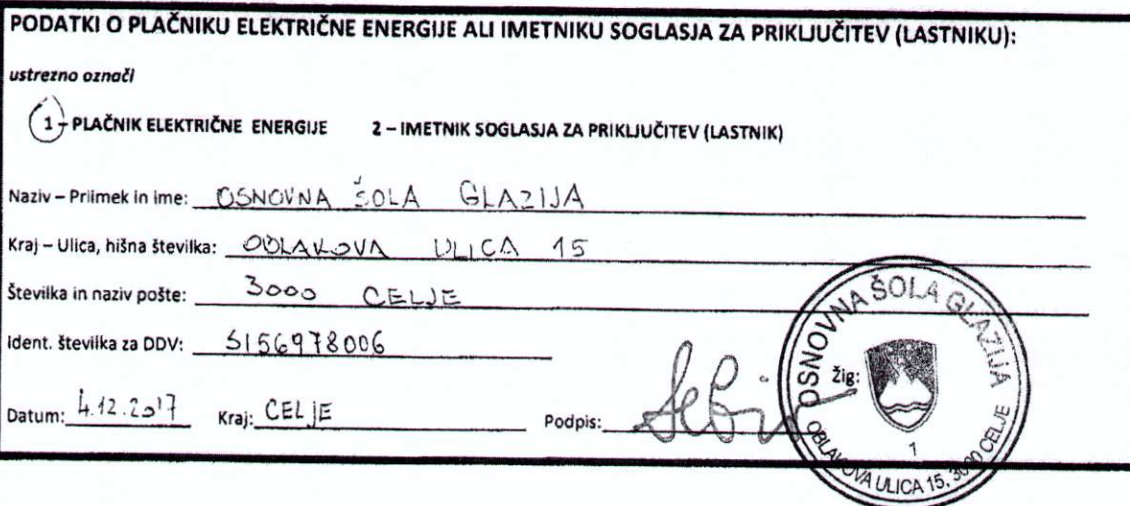 PODATKI O PLAČNIKU ELEKTRIČNE ENERGIJE ALI IMETNIKU SOGLASJA ZA PRIKLJUČITEV (LASTNIKU):
ustrezno označi
1 – PLAČNIK ELEKTRIČNE ENERGIJE 2 – IMETNIK SOGLASJA ZA PRIKLJUČITEV (LASTNIK)
Naziv – Priimek in ime: OSNOVNA ŠOLA GLAZIJA
Kraj – Ulica, hišna številka: OBLAKOVA ULICA 15
Številka in naziv pošte: 3000 CELJE
Ident. številka za DDV: SI56978006
Datum: 4.12.2017 Kraj: CELJE Podpis: Žig:
OSNOVNA ŠOLA GLAZIJA
1
OBLAKOVA ULICA 15, 3000 CELJE